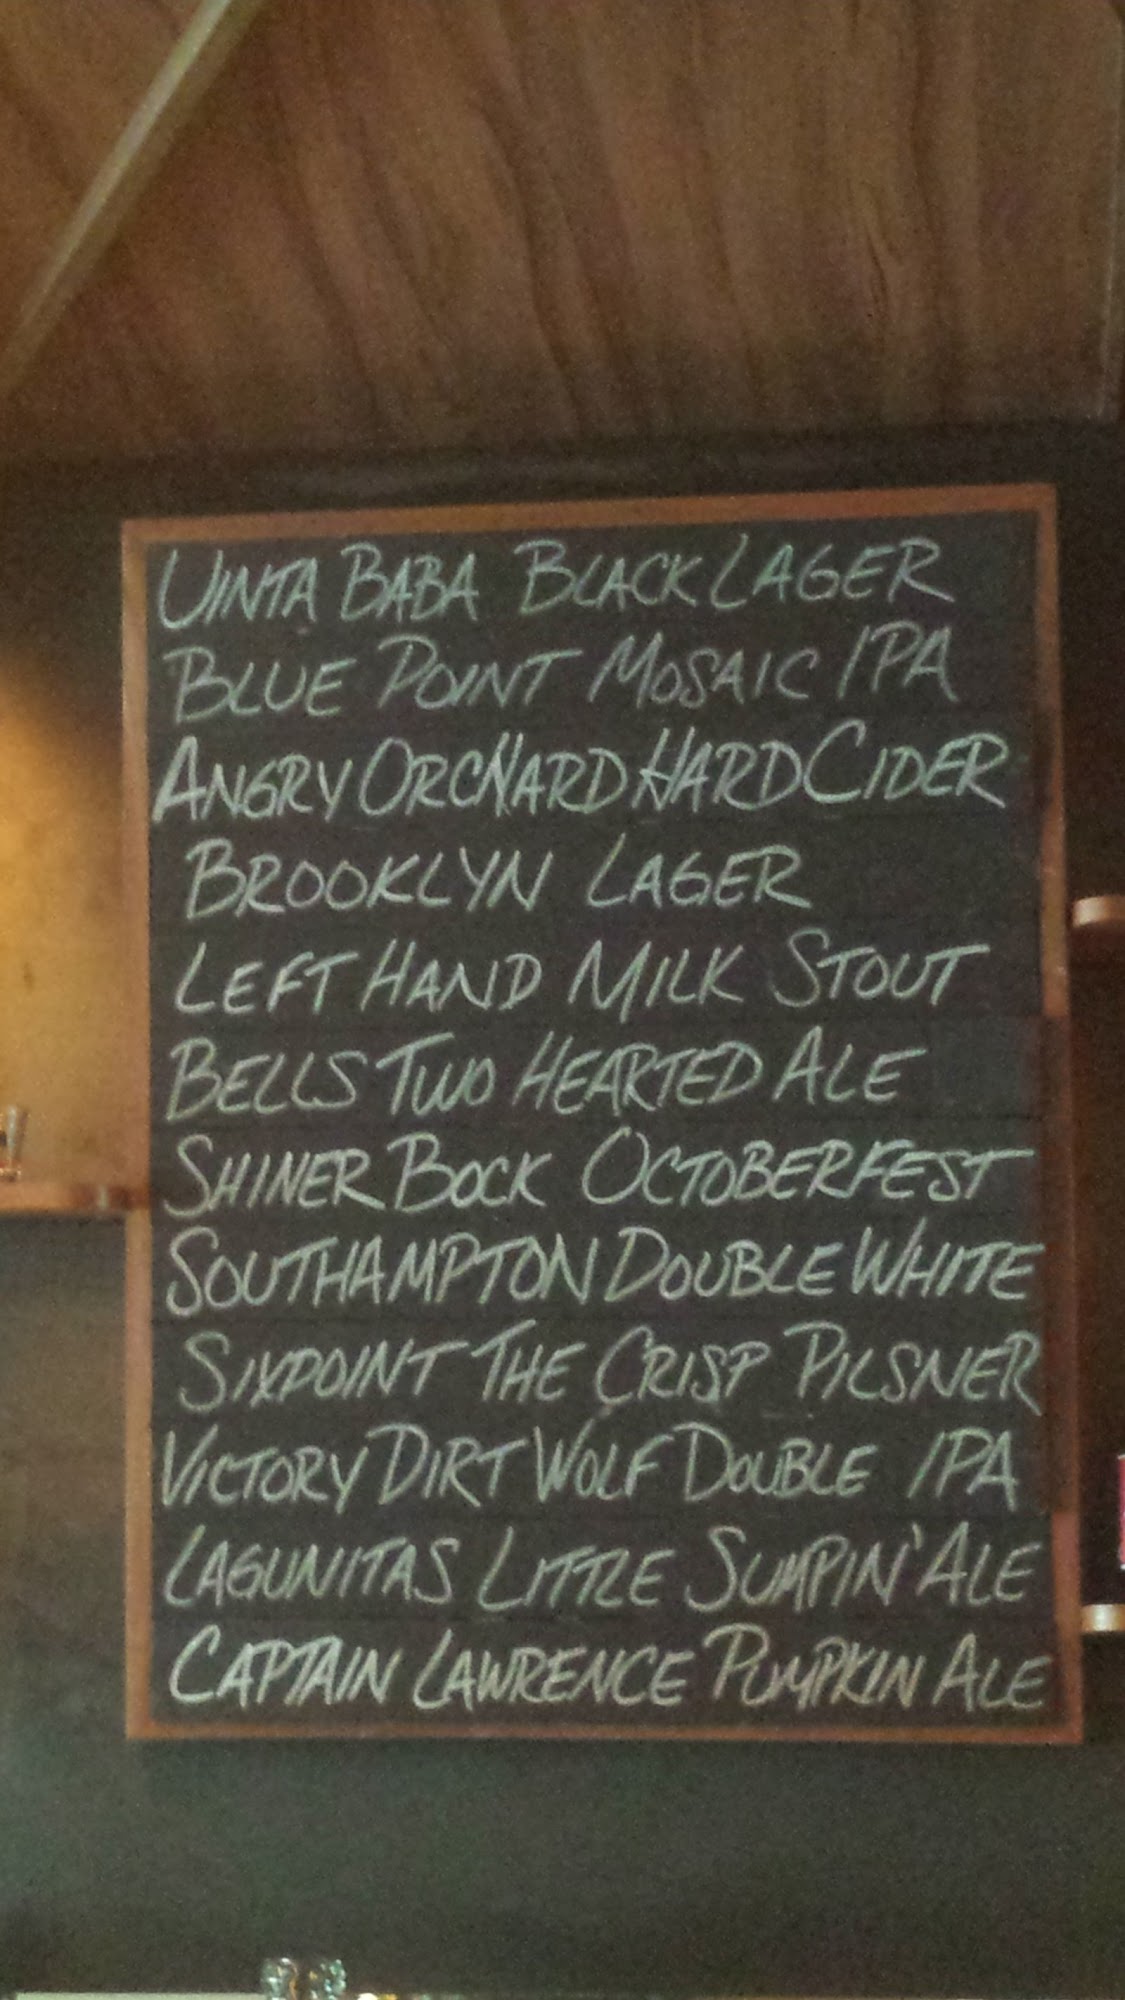 UINTA BABA BLACK LAGER
BLUE POINT MOSAIC IPA
ANGRY ORCHARD HARD CIDER
BROOKLYN LAGER
LEFT HAND MILK STOUT
BELLS TWO HEARTED ALE
SHINER BOCK OCTOBERFEST
SOUTHAMPTON DOUBLE WHITE
SIXPOINT THE CRISP PILSNER
VICTORY DIRT WOLF DOUBLE IPA
LAGUNITAS LITTLE SUMPIN' ALE
CAPTAIN LAWRENCE PUMPKIN ALE